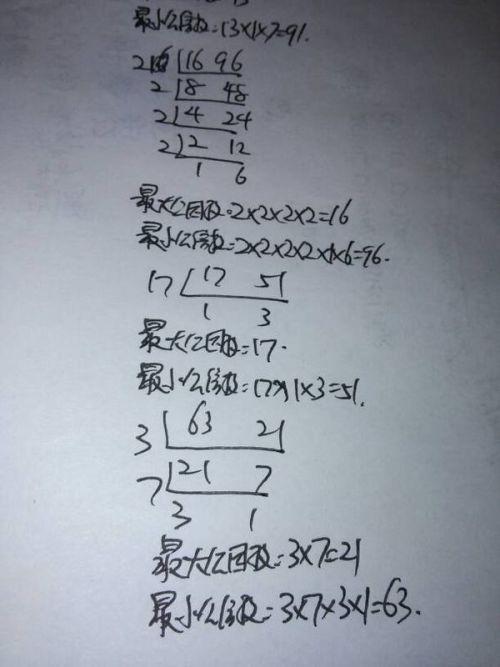 最小公倍数=13×1×7=91.
2 16 96
2 8 48
2 4 24
2 2 12
1 6
最大公因数=2×2×2×2=16
最小公倍数=2×2×2×2×1×6=96.
17 17 51
1 3
最大公因数=17.
最小公倍数=17×1×3=51.
3 63 21
7 21 7
3 1
最大公因数=3×7=21
最小公倍数=3×7×3×1=63.